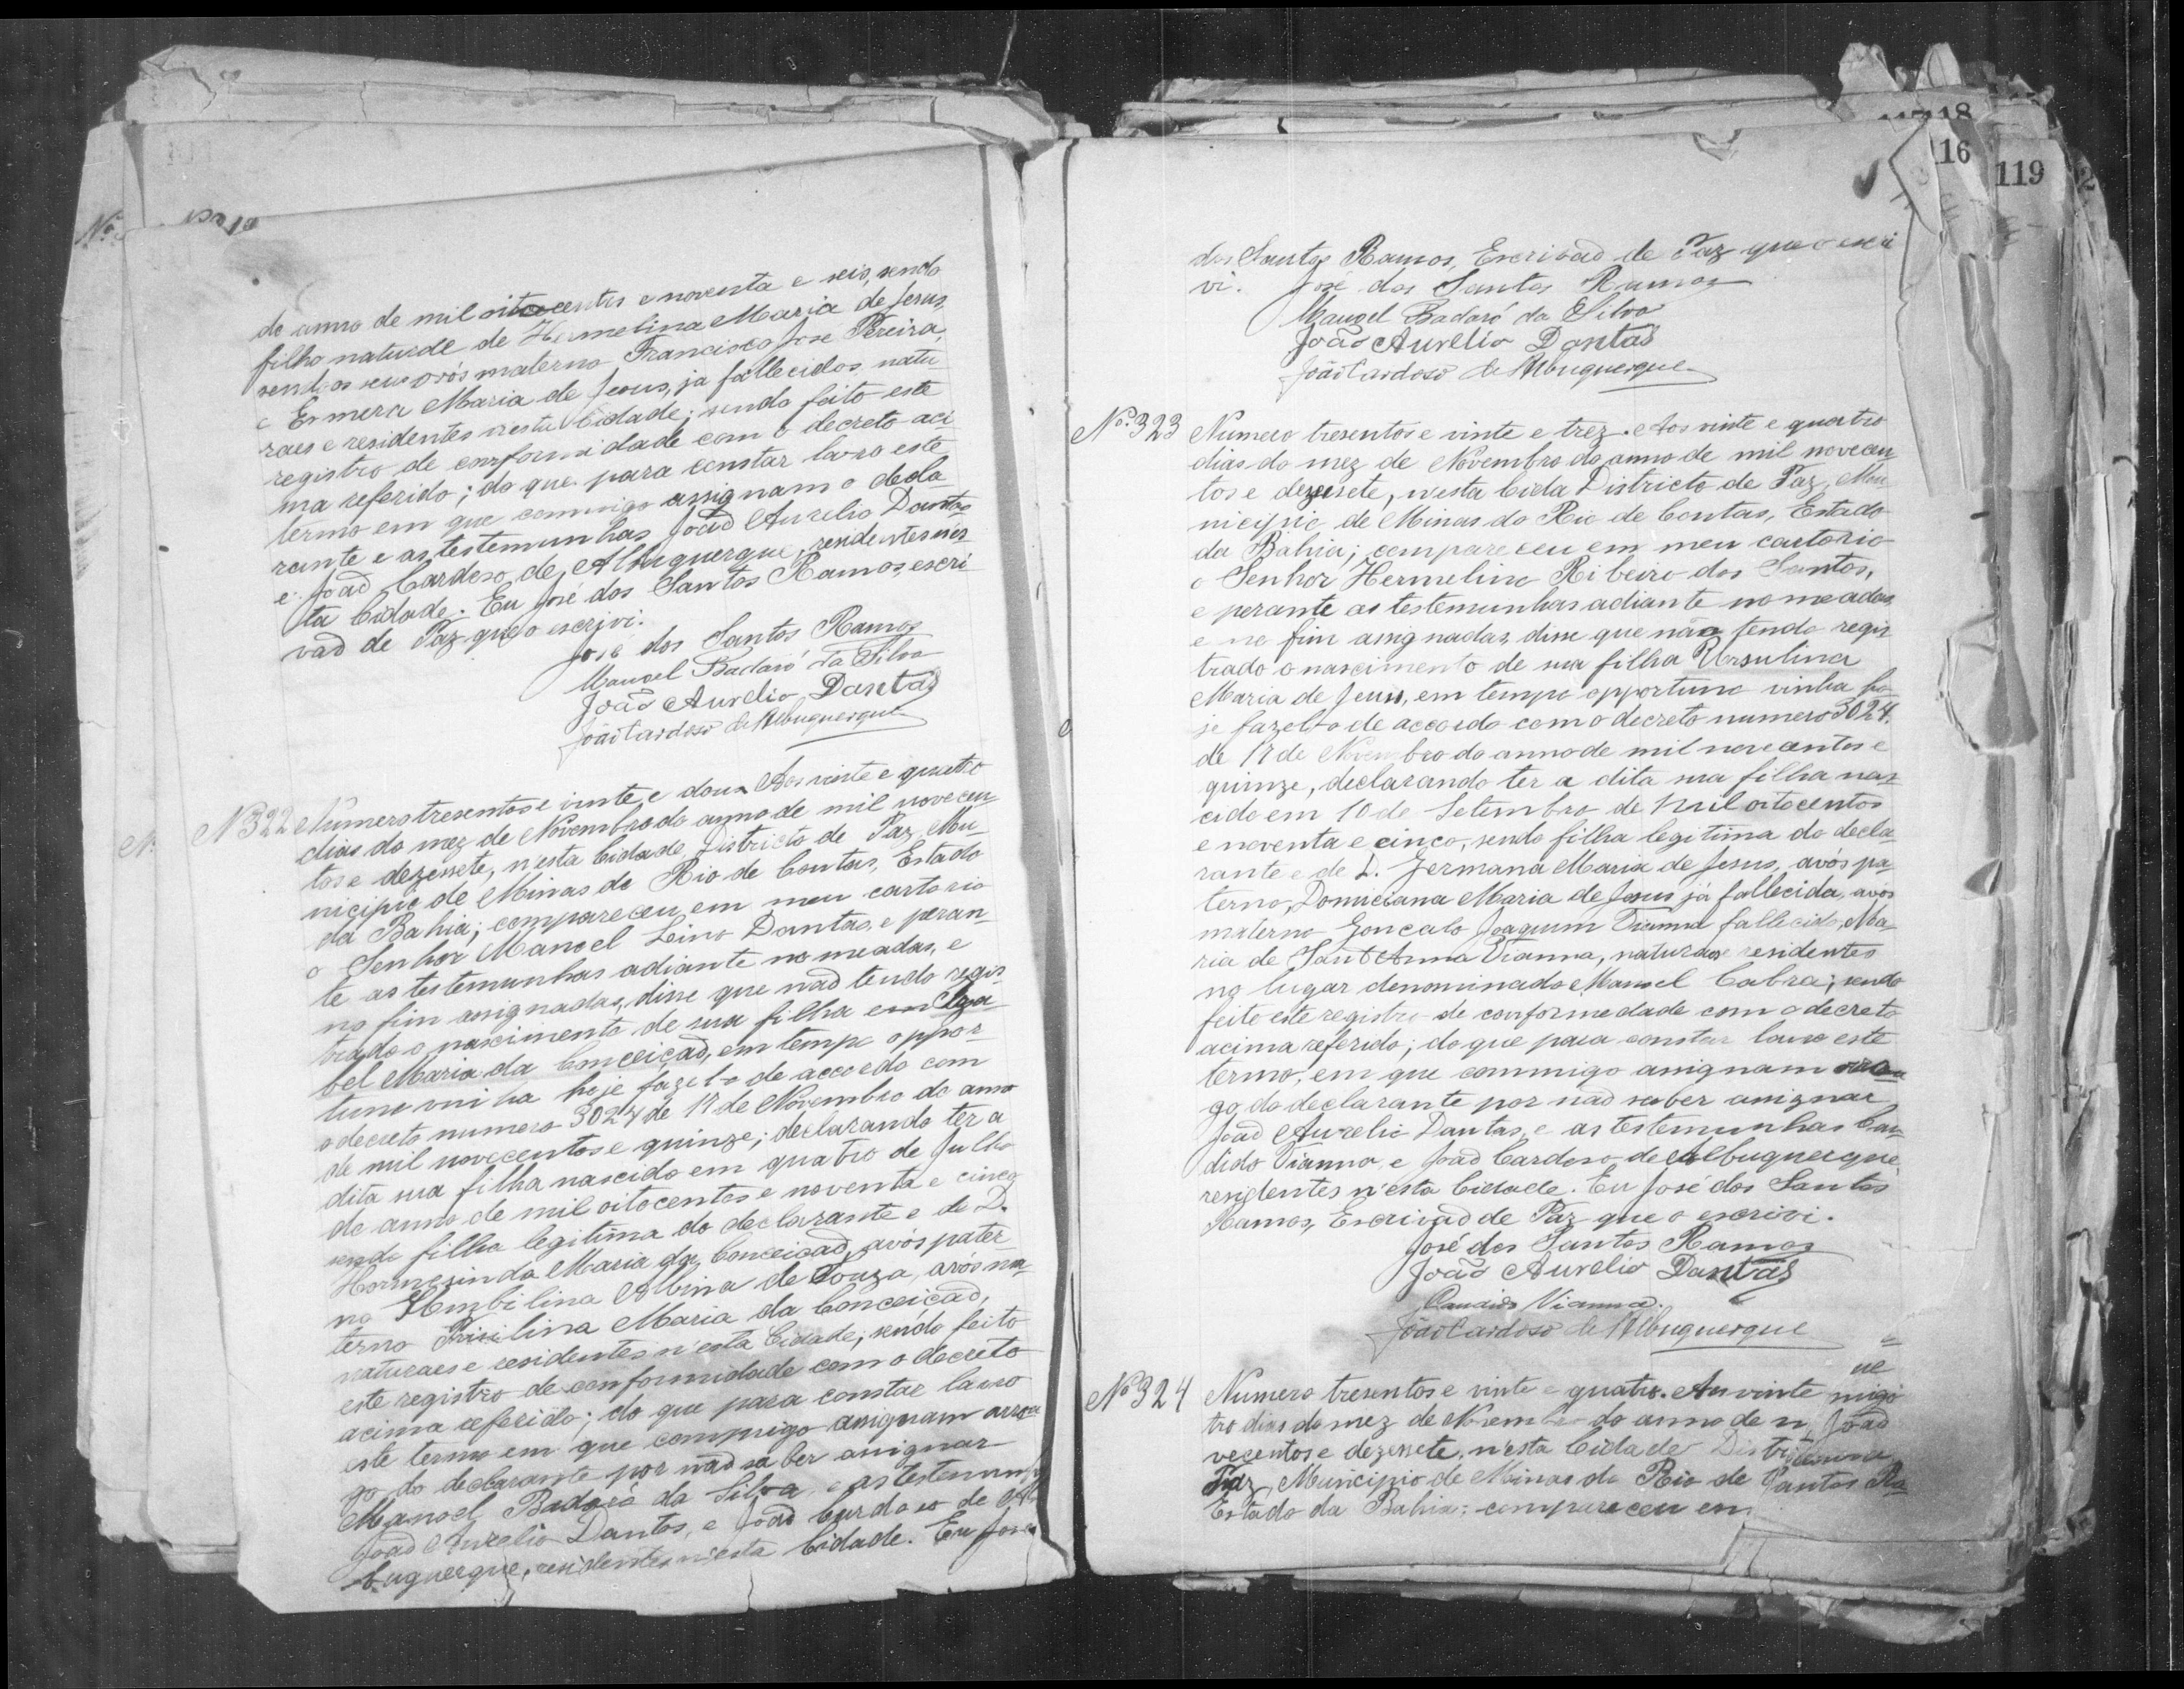 do anno de mil oitocentos e noventa e seis, sendo
filho naturde de Hermelina Maria de Jesus,
sendo os seus avós materno Francisco Jose Pereira,
e Esmera Maria de Jesus, ja fallecidos, natu
raes e residentes n'esta Cidade; sendo feito este
registro de conformidade com o decreto aci
ma referido; do que para constar lavro este
termo em que commigo assignam o decla
rante e as testemunhas João Aurelio Dantas
e João Cardoso de Albuquerque, residentes n'es
ta Cidade. Eu José dos Santos Ramos, escri
vaõ de Paz que o escrivi.
José dos Santos Ramos
Manoel Badaró da Silva
João Aurelio Dantas
João Cardoso de Albuquerque
N 322 Numero tresentos e vinte e dous. Aos vinte e quatro
dias do mez de Novembro do anno de mil novecen
tos e dezessete, n'esta Cidade, Districto de Paz, Mu
nicipio de Minas do Rio de Contas, Estado
da Bahia; compareceu em meu cartorio
o Senhor Manoel Lino Dantas, e peran
te as testemunhas adiante nomeadas, e
no fim assignadas, disse que naõ tendo regis
trado o nascimento de sua filha em Isa
bel Maria da Conceiçaõ, em tempo oppor
tuno vinha hoje fazel-o de accordo com
o decreto numero 3024 de 17 de Novembro do anno
de mil novecentos e quinze; declarando ter a
dita sua filha nascido em quatro de Julho
do anno de mil oitocentos e noventa e cinco
sendo filha legitima do declarante e de D.
Hormezinda Maria da Conceiçaõ, avós pater
no Umbilina Albina de Souza, avós ma
terno Maria da Conceiçaõ,
naturaes e residentes n'esta Cidade; sendo feito
este registro de conformidade com o decreto
acima referido; do que para constar lavro
este termo em que commigo assignam arro
go do declarante por naõ saber assignar
Manoel Badaró da Silva, e as testemun
João Aurelio Dantas, e João Cardoso de Al
buquerque, residentes n'esta Cidade. Eu José
119
16
118
dos Santos Ramos, Escrivaõ de Paz que o escri
vi. José dos Santos Ramos
Manoel Badaró da Silva
João Aurelio Dantas
João Cardoso de Albuquerque
Nº 323 Numero tresentos e vinte e trez. Aos vinte e quatro
dias do mez de Novembro do anno de mil novecen
tos e dezesete, n'esta Cida Districto de Paz, Mu
nicipio de Minas do Rio de Contas, Estado
da Bahia; compareceu em meu cartorio
o Senhor Hermelino Ribeiro dos Santos,
e perante as testemunhas adiante nomeadas
e no fim assignadas, disse que não tendo regis
trado o nascimento de sua filha Ursulina
Maria de Jesus, em tempo opportuno vinha ho
je fazel-o de accordo com o decreto numero 3024,
de 17 de Novembro do anno de mil novecentos e
quinze, declarando ter a dita sua filha nas
cido em 10 de Setembro de mil oitocentos
e noventa e cinco, sendo filha legitima do decla
rante e de D. Jermana Maria de Jesus, avós pa
terno, Domiciana Maria de Jesus já fallecida, avós
materno Goncalo Joaquim Vianna fallecido, Ma
ria de Sant Anna Vianna, naturaes e residentes
no lugar denominado Manoel Cabra; sendo
feito este registro de conformedade com o decreto
acima referido; do que para constar lavro este
termo, em que commigo assignam
go do declarante por naõ saber assignar
João Aurelio Dantas, e as testemunhas Can
dido Vianna, e João Cardoso de Albuquerque,
residentes n'esta Cidade. Eu José dos Santos
Ramos, Escrivaõ de Paz que o escrivi.
José dos Santos Ramos
João Aurelio Dantas
Candido Vianna.
João Cardoso de Albuquerque
Nº 324 Numero tresentos e vinte e quatro. Aos vinte
tro dias do mez de Novembro do anno de
vecentos e dezessete, n'esta Cidade Distri
Paz, Municipio de Minas do Rio de
Estado da Bahia; compareceu em